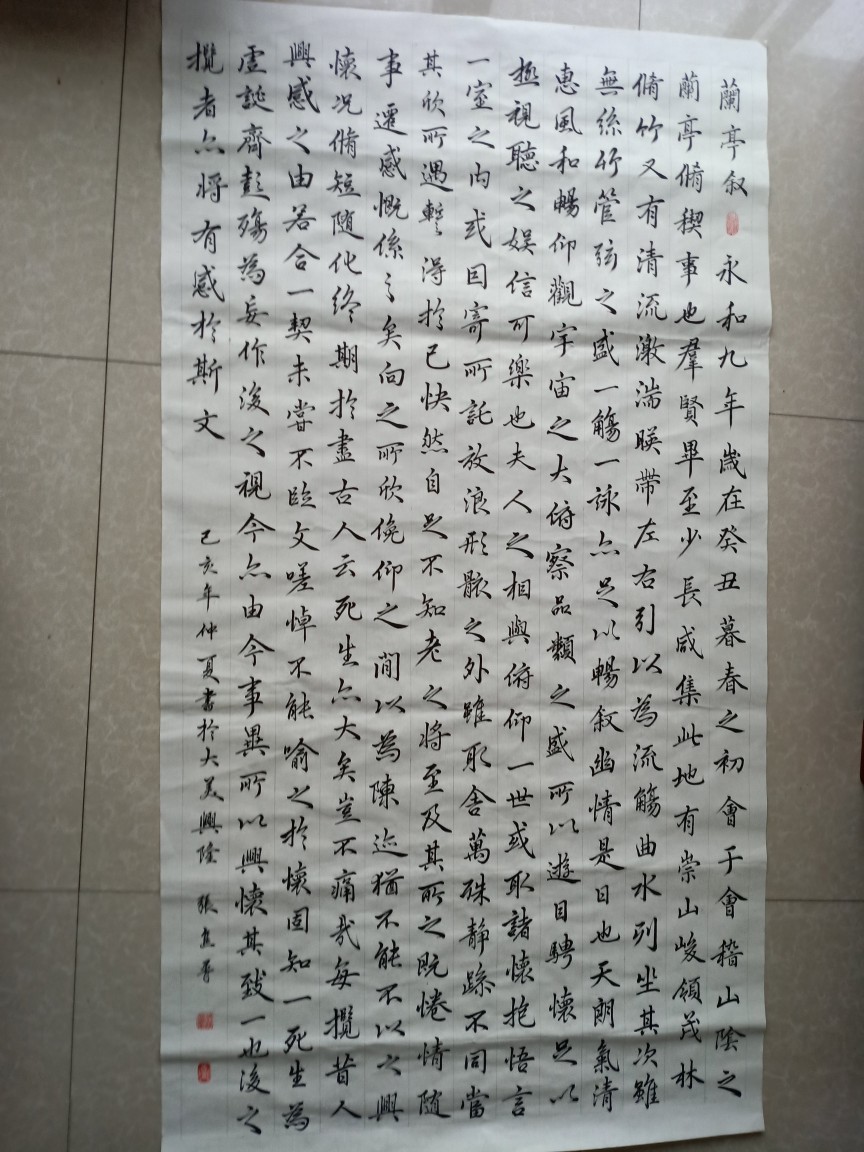 蘭亭叙 永和九年歲在癸丑暮春之初會于會稽山陰之
蘭亭脩稧事也羣賢畢至少長咸集此地有崇山峻領茂林
脩竹又有清流激湍暎帶左右引以為流觴曲水列坐其次雖
無絲竹管弦之盛一觴一詠亦足以暢叙幽情是日也天朗氣清
惠風和暢仰觀宇宙之大俯察品類之盛所以遊目騁懷足以
極視聽之娛信可樂也夫人之相與俯仰一世或取諸懷抱悟言
一室之內或因寄所託放浪形骸之外雖取舍萬殊静躁不同當
其欣所遇蹔得於己快然自足不知老之將至及其所之既惓情隨
事遷感慨係之矣向之所欣俛仰之間以為陳迹猶不能不以之興
懷况脩短隨化終期於盡古人云死生亦大矣豈不痛哉每攬昔人
興感之由若合一契未嘗不臨文嗟悼不能喻之於懷固知一死生為
虛誕齊彭殤為妄作後之視今亦由今事異所以興懷其致一也後之
攬者亦將有感於斯文
己亥年仲夏書於大美興隆 張